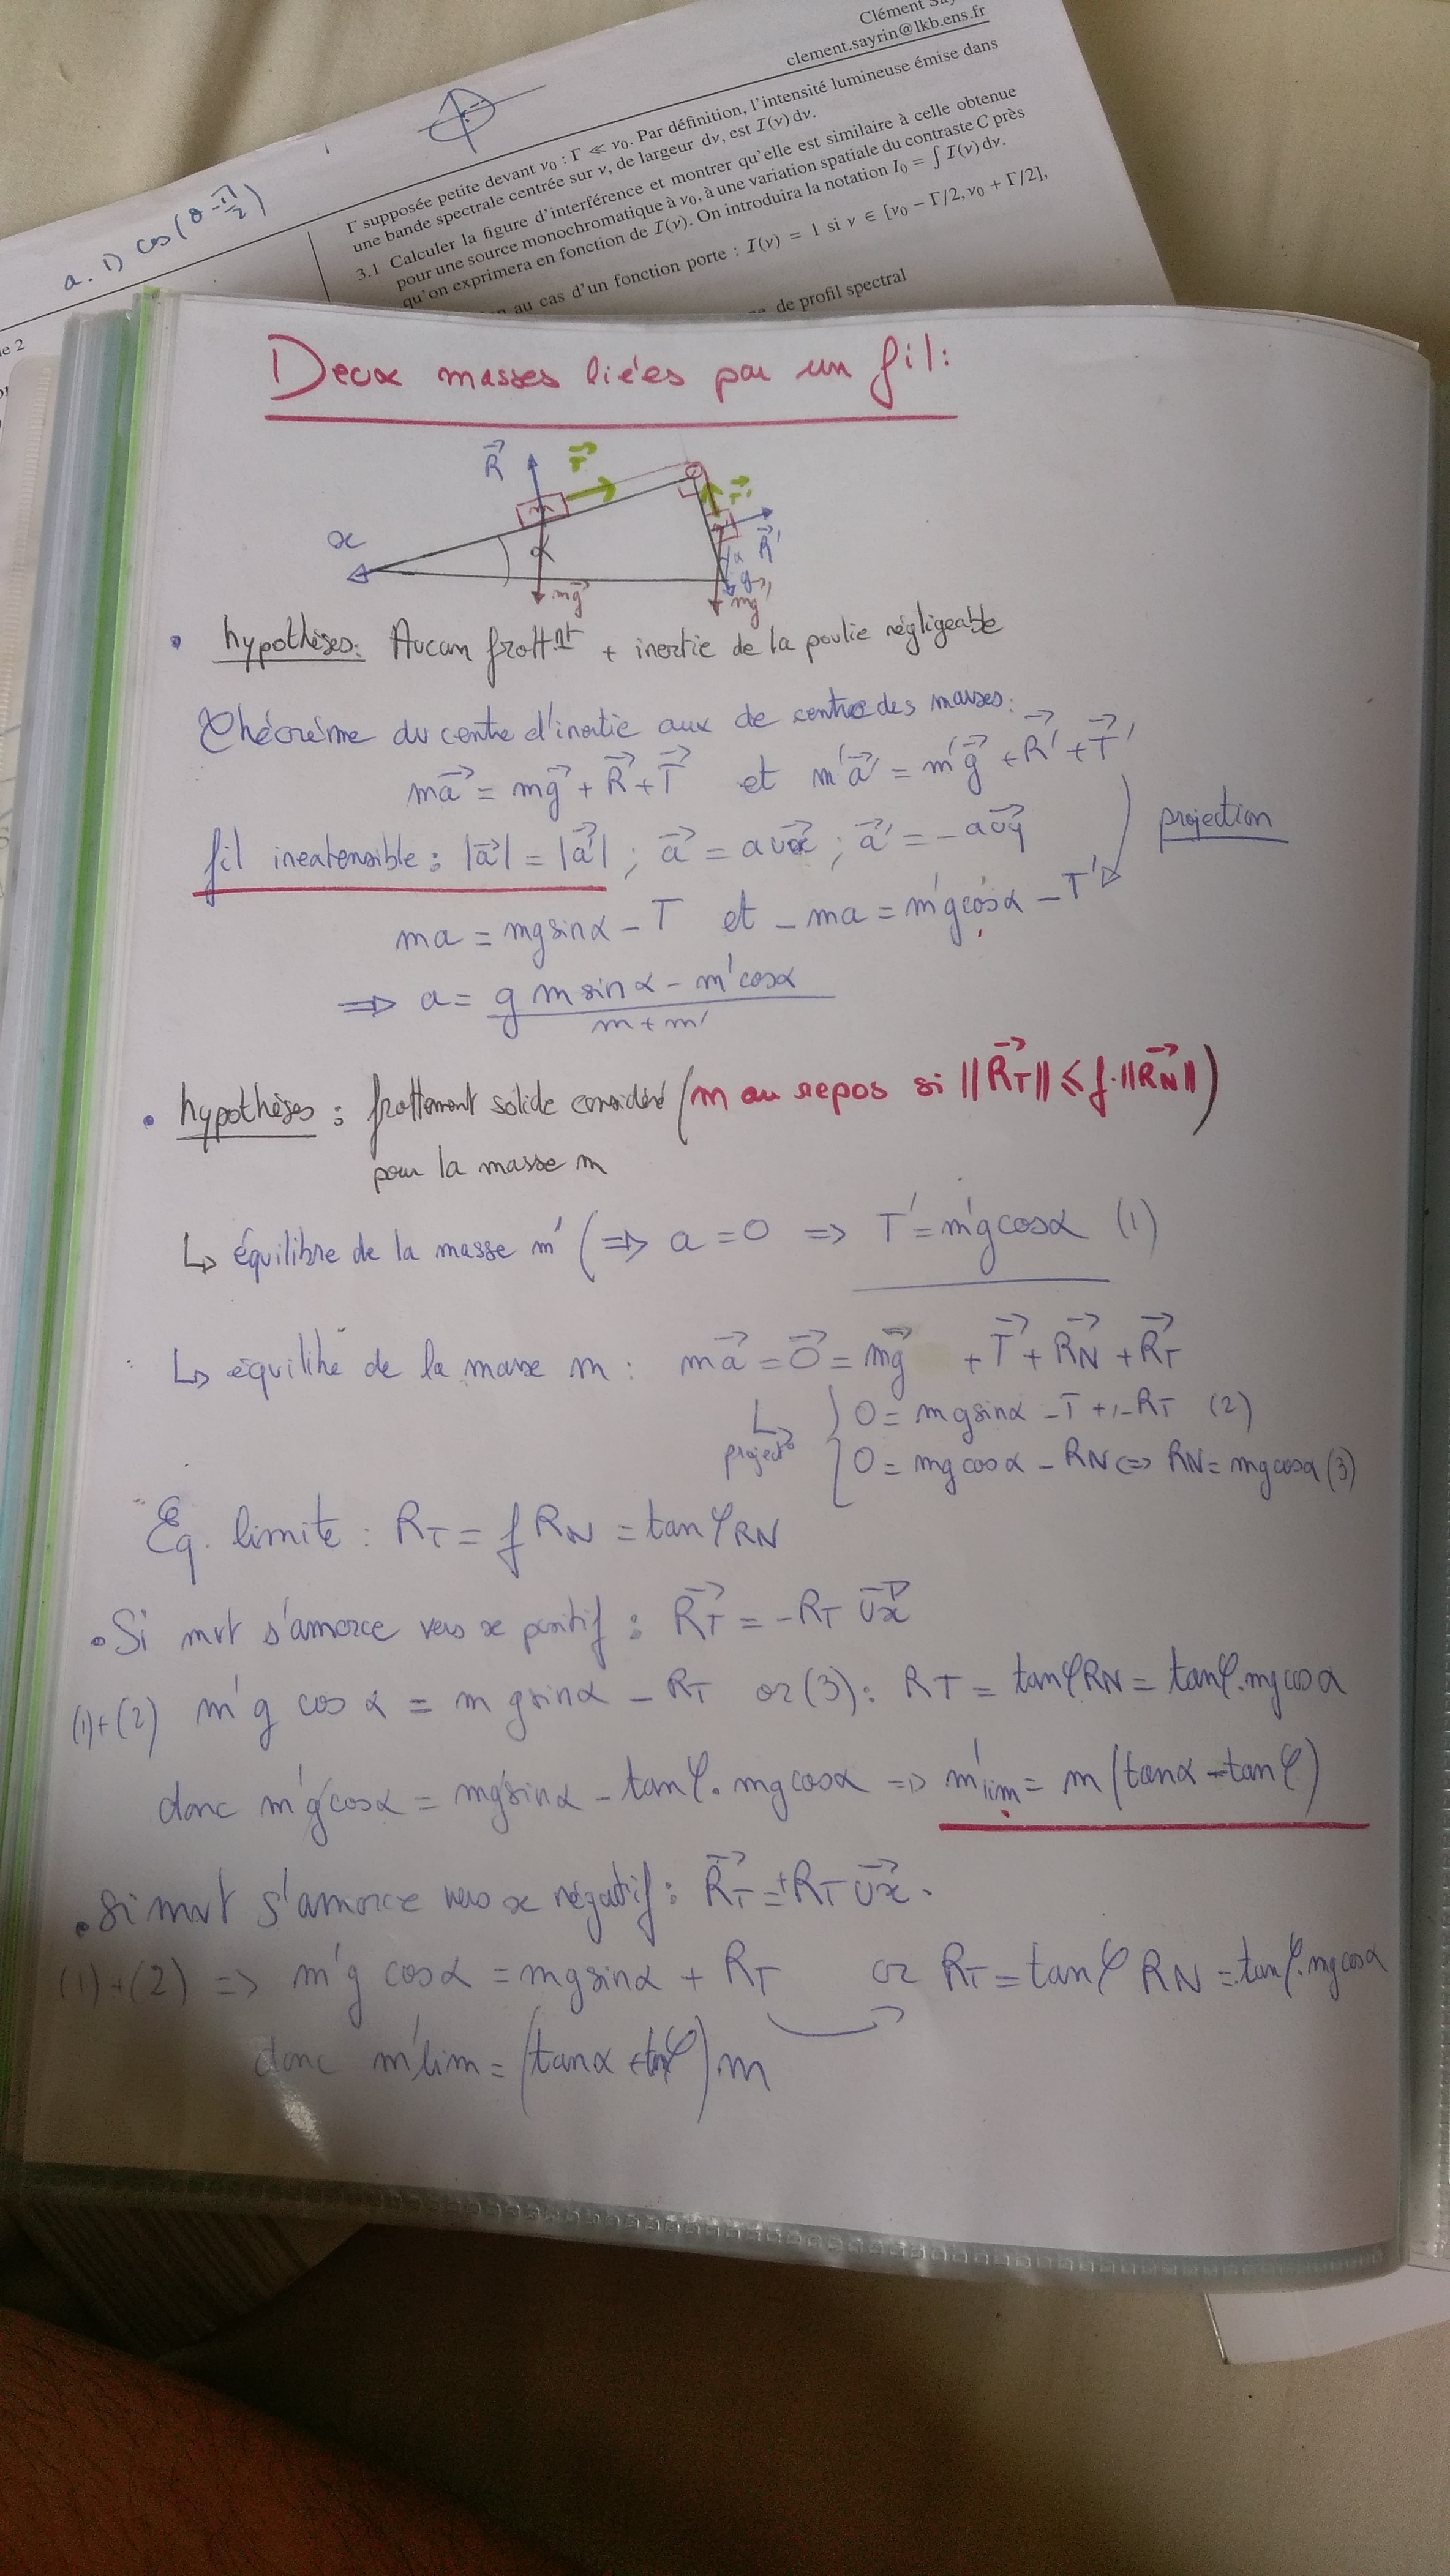 Clément Say
clement.sayrin@lkb.ens.fr
a. 1) cos(θ-π/2)
Γ supposée petite devant ν₀ : Γ ≪ ν₀. Par définition, l'intensité lumineuse émise dans
une bande spectrale centrée sur ν, de largeur dν, est I(ν)dν.
3.1 Calculer la figure d'interférence et montrer qu'elle est similaire à celle obtenue
pour une source monochromatique à ν₀, à une variation spatiale du contraste C près
qu'on exprimera en fonction de I(ν). On introduira la notation I₀ = ∫ I(ν)dν.
au cas d'un fonction porte : I(ν) = 1 si ν ∈ [ν₀ − Γ/2, ν₀ + Γ/2],
de profil spectral
e 2
Deux masses liées par un fil:
R⃗ T⃗ T⃗' R⃗'
x m α α y
mg⃗ mg⃗'
• hypothèses: Aucun frottmt + inertie de la poulie négligeable
Théorème du centre d'inertie aux de centre des masses:
ma⃗ = mg⃗ + R⃗ + T⃗ et m'a⃗' = m'g⃗ + R⃗' + T⃗'
projection
fil inextensible: |a⃗| = |a⃗'| ; a⃗ = a u⃗x ; a⃗' = -a u⃗y
ma = mg sinα - T et - ma = m'g cosα - T'
⇒ a = g (m sin α - m'cosα)/(m + m')
• hypothèses : frottement solide considéré (m au repos si ||R⃗T|| ⩽ f.||R⃗N||)
pour la masse m
↳ équilibre de la masse m' (⇒ a = 0 ⇒ T' = m'g cosα (1)
↳ équilibre de la masse m : ma⃗ = 0⃗ = mg⃗ + T⃗ + R⃗N + R⃗T
↳ { 0 = mg sinα - T +/- RT (2)
project° 0 = mg cosα - RN ⇔ RN = mg cosα (3)
Eq. limite : RT = f RN = tanφ RN
• Si mvt s'amorce vers x positif : R⃗T = -RT u⃗x
(1)+(2) m'g cos α = m g sinα - RT or (3): RT = tanφ RN = tanφ.mg cosα
donc m'g cosα = mg sinα - tanφ. mg cosα ⇒ m'lim = m (tanα - tanφ)
• Si mvt s'amorce vers x négatif : R⃗T = +RT u⃗x.
(1)+(2) ⇒ m'g cosα = mg sinα + RT or RT = tanφ RN = tanφ.mg cosα
donc m'lim = (tanα + tanφ) m